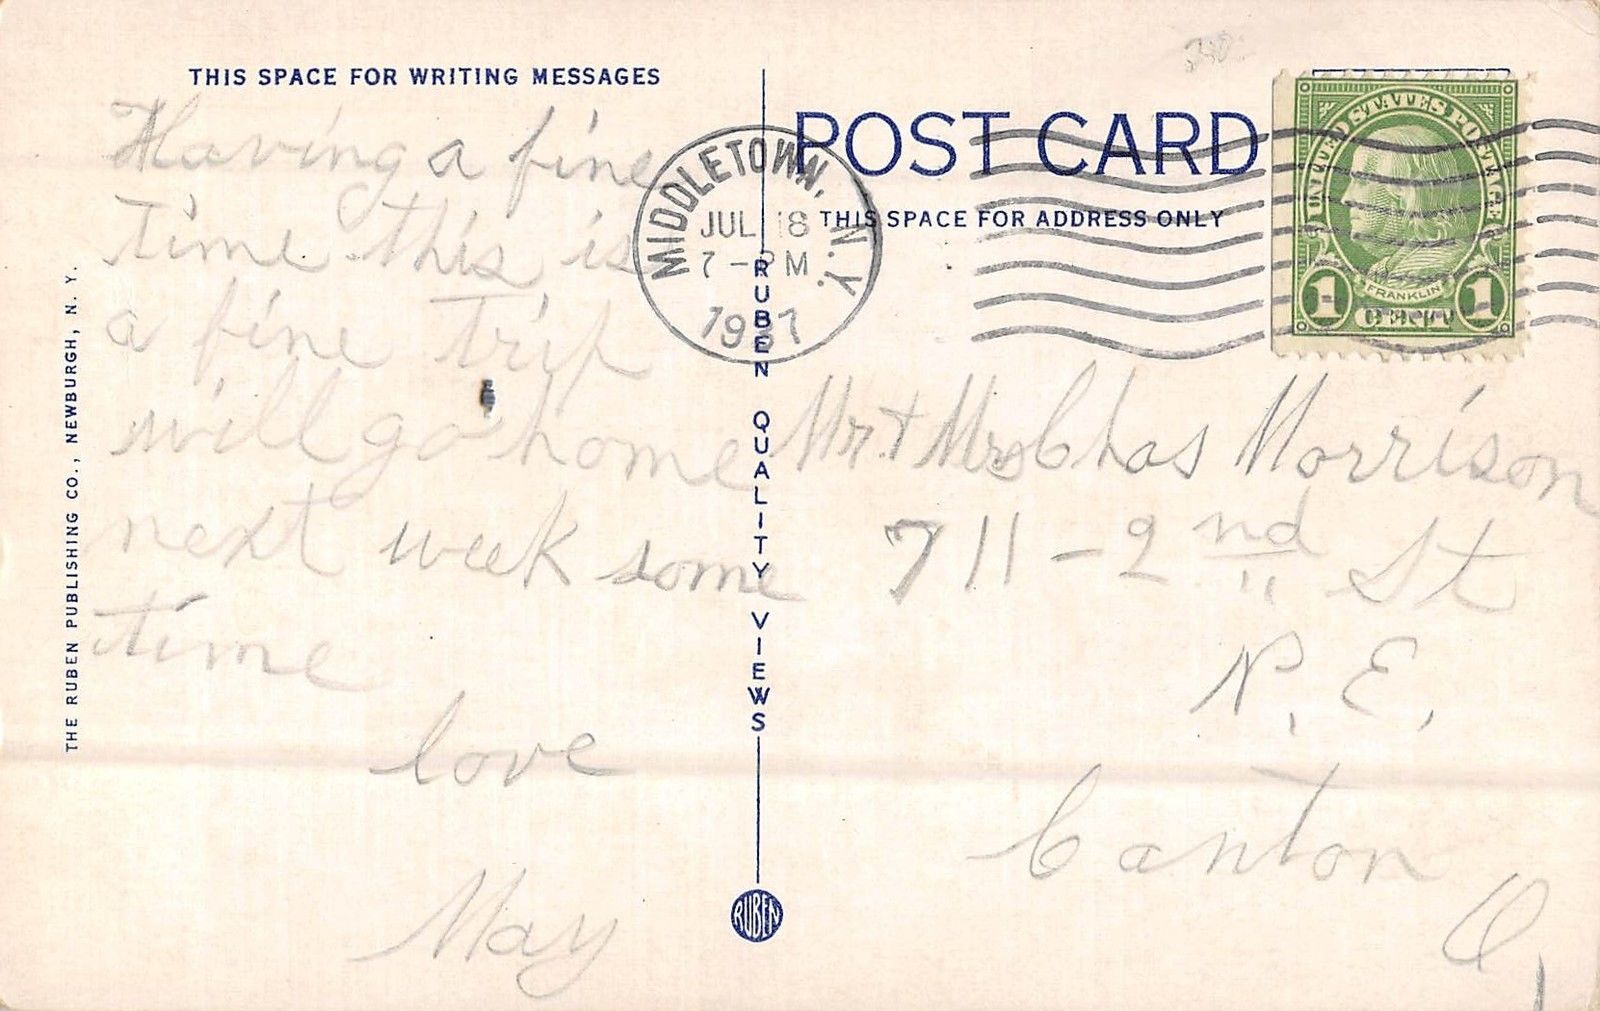 THIS SPACE FOR WRITING MESSAGES
Having a fine
time this is
a fine trip
will go home
next week some
time
love
May
THE RUBEN PUBLISHING CO., NEWBURGH, N. Y.
RUBEN QUALITY VIEWS
RUBEN
POST CARD
THIS SPACE FOR ADDRESS ONLY
MIDDLETOWN, N.Y.
JUL 18
7 - PM
1937
UNITED STATES POSTAGE
FRANKLIN
1 CENT 1
Mr. + Mrs Chas Morrison
711 - 2nd St
N. E.
Canton
O,